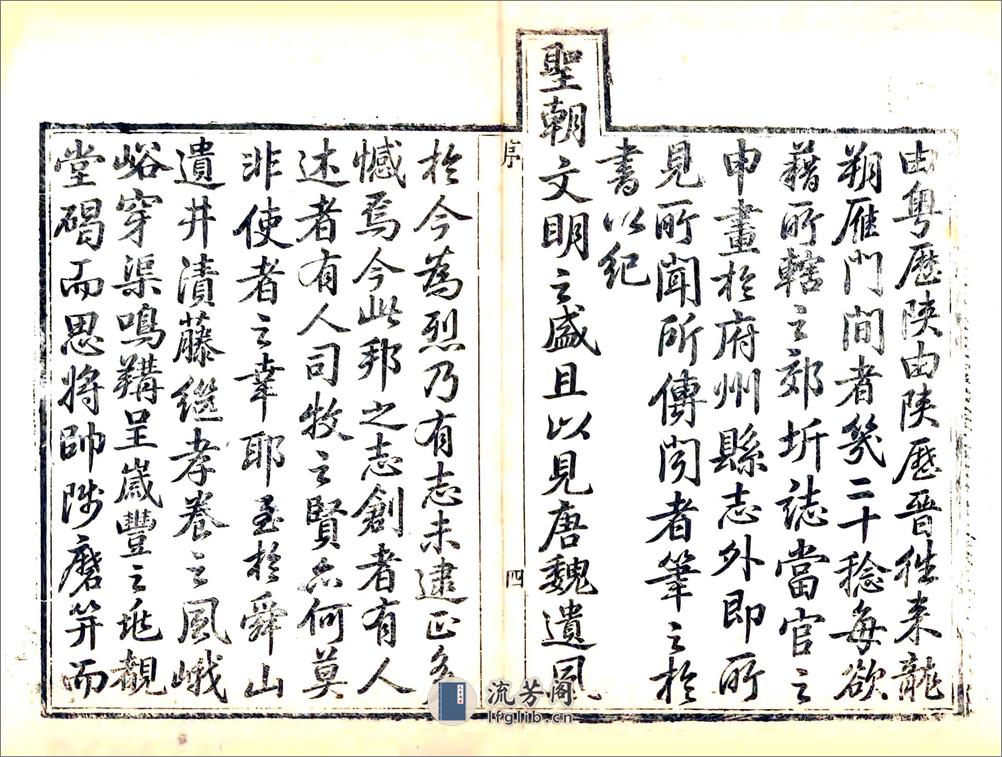 由粤歷陕由陕歷晋徃来龍
朔雁門間者幾二十稔每欲
藉所轄之郊圻誌當官之
申畫於府州縣志外即所
見所聞所傳闻者筆之於
書以纪
聖朝文明之盛且以見唐魏遺風
序
四
於今為烈乃有志未逮正多
憾焉今此邦之志創者有人
述者有人司牧之賢亦何莫
非使者之幸耶至於舜山
遺井漬藤继孝養之風峨
峪穿渠鳴鞲呈嵗豐之兆觀
堂碣而思将帥陟磨笄而
流芳阁
lfglib.cn